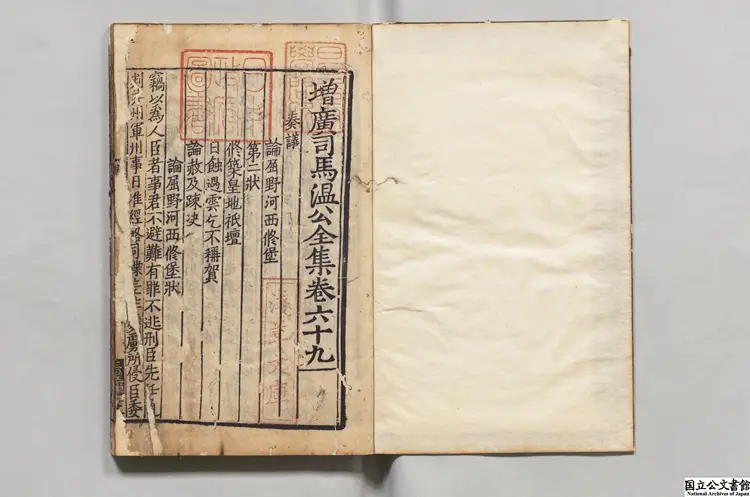 增廣司馬温公全集卷六十九
奏議
論屈野河西修堡
第二狀
修築皇地祇壇
日蝕遇雲乞不稱賀
論赦及疎決
論屈野河西修堡狀
竊以爲人臣者事君不避難有罪不逃刑臣先任
州軍州事日准經略司牒 虜所侵臣委
淺草文庫
国立公文書館
National Archives of Japan